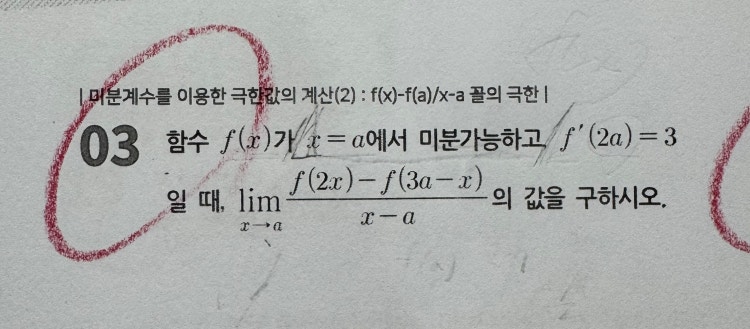 | 미분계수를 이용한 극한값의 계산(2) : f(x)-f(a)/x-a 꼴의 극한 |
03 함수 f(x)가 x=a에서 미분가능하고 f′(2a)=3
일 때, lim_{x→a} \frac{f(2x)-f(3a-x)}{x-a}의 값을 구하시오.